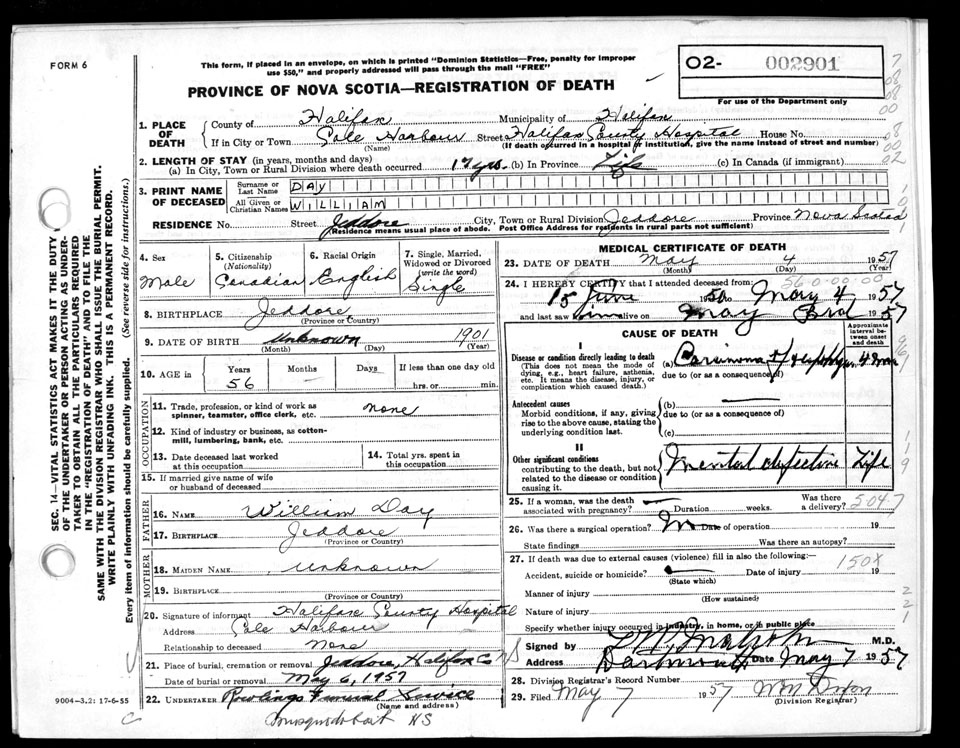 FORM 6
This form, if placed in an envelope, on which is printed "Dominion Statistics—Free, penalty for improper
use $50," and properly addressed will pass through the mail "FREE"
PROVINCE OF NOVA SCOTIA—REGISTRATION OF DEATH
O2- 002901
For use of the Department only
1. PLACE OF DEATH
County of Halifax Municipality of Halifax
If in City or Town Cole Harbour Street Halifax County Hospital House No.
(Name) (If death occurred in a hospital or institution, give the name instead of street and number)
2. LENGTH OF STAY (in years, months and days)
(a) In City, Town or Rural Division where death occurred 17 yrs. (b) In Province Life (c) In Canada (if immigrant)
3. PRINT NAME OF DECEASED
Surname or Last Name DAY
All Given or Christian Names WILLIAM
RESIDENCE No. Street Jeddore City, Town or Rural Division Jeddore Province Nova Scotia
(Residence means usual place of abode. Post Office Address for residents in rural parts not sufficient)
4. Sex Male
5. Citizenship (Nationality) Canadian
6. Racial Origin English
7. Single, Married, Widowed or Divorced (write the word) Single
8. BIRTHPLACE Jeddore
(Province or Country)
9. DATE OF BIRTH Unknown 1901
(Month) (Day) (Year)
10. AGE in Years Months Days If less than one day old
56 hrs. or min.
OCCUPATION
11. Trade, profession, or kind of work as spinner, teamster, office clerk, etc. none
12. Kind of industry or business, as cotton-mill, lumbering, bank, etc.
13. Date deceased last worked at this occupation
14. Total yrs. spent in this occupation
15. If married give name of wife or husband of deceased
FATHER
16. NAME William Day
17. BIRTHPLACE Jeddore
(Province or Country)
MOTHER
18. MAIDEN NAME unknown
19. BIRTHPLACE
(Province or Country)
20. Signature of informant Halifax County Hospital
Address Cole Harbour
Relationship to deceased None
21. Place of burial, cremation or removal Jeddore, Halifax Co NS
Date of burial or removal May 6, 1957
22. UNDERTAKER Rawlings Funeral Service
(Name and address)
Musquodoboit NS
9004—3.2: 17-6-55
MEDICAL CERTIFICATE OF DEATH
23. DATE OF DEATH May 4 1957
(Month) (Day) (Year)
24. I HEREBY CERTIFY that I attended deceased from:
15 June 1956 to May 4 1957
and last saw him alive on May 3rd 1957
CAUSE OF DEATH
Approximate interval between onset and death
I
Disease or condition directly leading to death
(This does not mean the mode of dying, e.g., heart failure, asthenia, etc. It means the disease, injury, or complication which caused death.)
(a) Carcinoma of
due to (or as a consequence of)
Antecedent causes
Morbid conditions, if any, giving rise to the above cause, stating the underlying condition last.
(b)
due to (or as a consequence of)
(c)
II
Other significant conditions
contributing to the death, but not related to the disease or condition causing it.
Mental defective Life
25. If a woman, was the death associated with pregnancy? Duration weeks. Was there a delivery?
5047
26. Was there a surgical operation? No Date of operation 19
State findings Was there an autopsy?
27. If death was due to external causes (violence) fill in also the following:—
Accident, suicide or homicide? Date of injury 19
(State which)
150X
Manner of injury
(How sustained)
Nature of injury
Specify whether injury occurred in industry, in home, or in public place
Signed by M.D.
Address Dartmouth Date May 7 1957
28. Division Registrar's Record Number
29. Filed May 7 1957
(Division Registrar)
SEC. 14—VITAL STATISTICS ACT MAKES IT THE DUTY
OF THE UNDERTAKER OR PERSON ACTING AS UNDER-
TAKER TO OBTAIN ALL THE PARTICULARS REQUIRED
IN THE "REGISTRATION OF DEATH" AND TO FILE THE
SAME WITH THE DIVISION REGISTRAR WHO SHALL ISSUE THE BURIAL PERMIT.
WRITE PLAINLY WITH UNFADING INK. THIS IS A PERMANENT RECORD.
Every item of information should be carefully supplied. (See reverse side for instructions.)